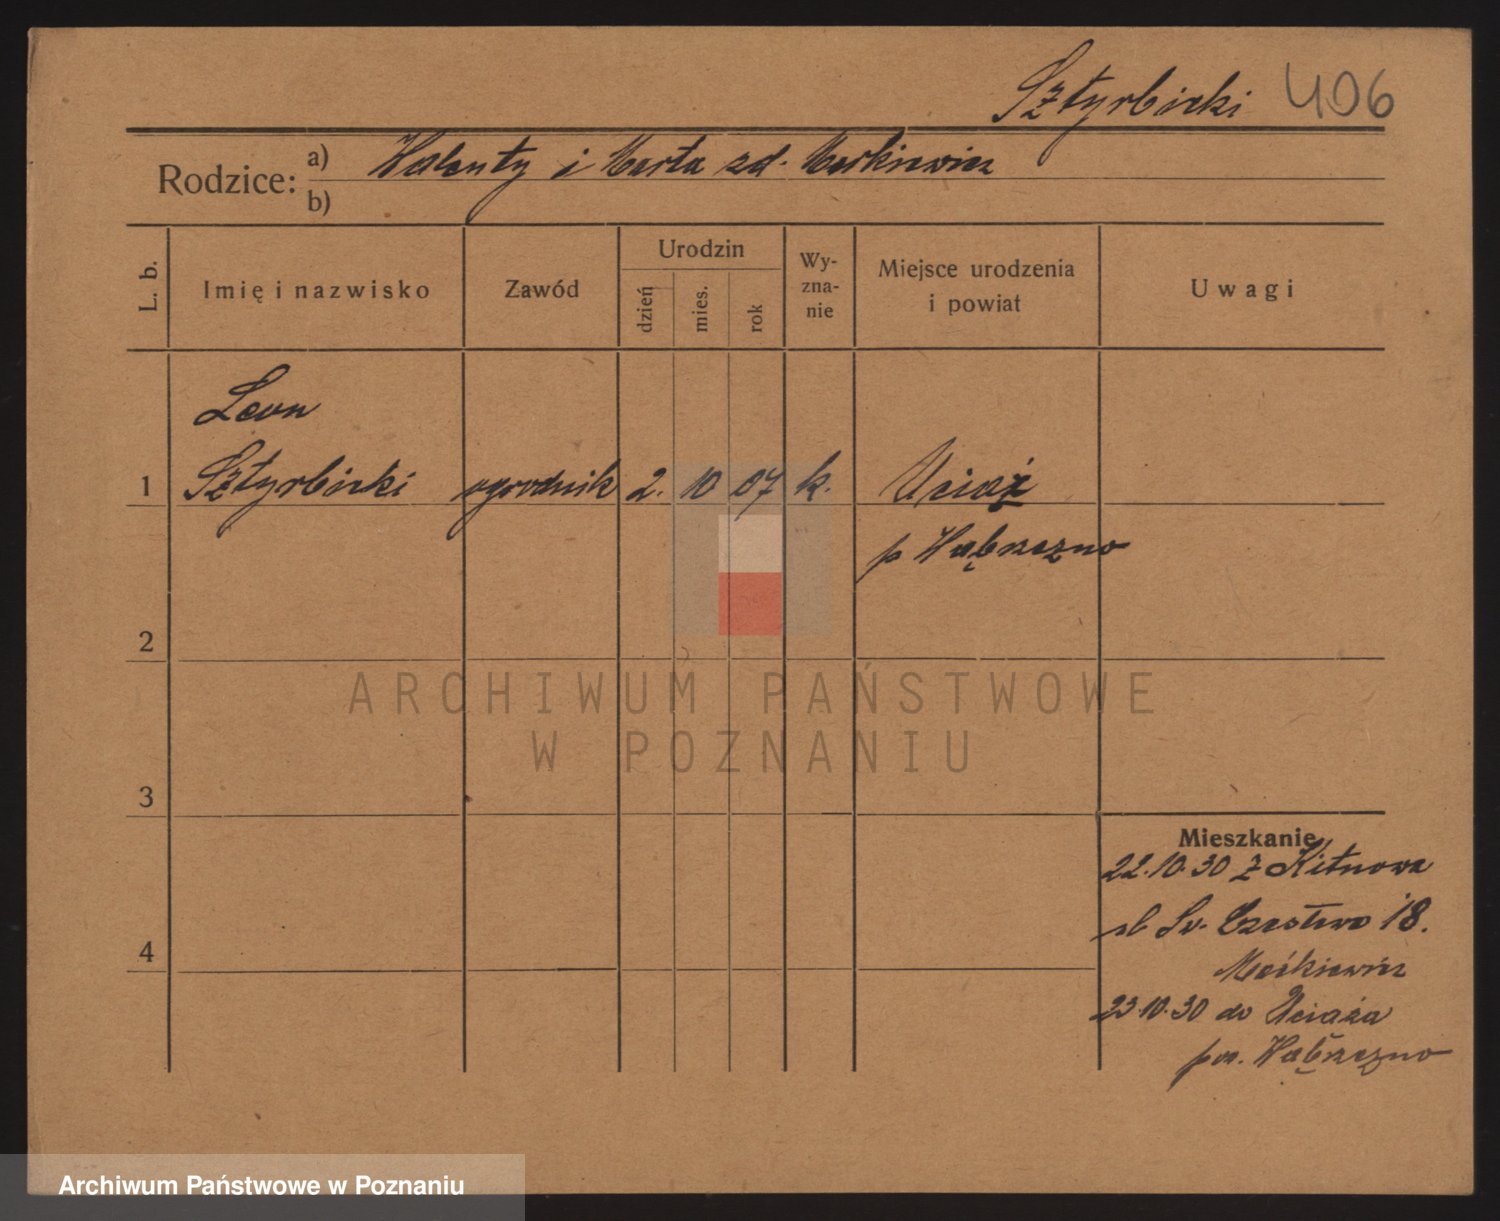 Sztyrbicki 406
Rodzice: a) Walenty i Marta zd. Markiewicz
b)
L. b.
Imię i nazwisko
Zawód
Urodzin
dzień
mies.
rok
Wy-
zna-
nie
Miejsce urodzenia
i powiat
Uwagi
Leon
1 Sztyrbicki ogrodnik 2. 10 07 k. Uciąż
p Wąbrzezno
2
ARCHIWUM PAŃSTWOWE
W POZNANIU
3
Mieszkanie
22.10.30 z Kitnowa
Św. Czesława 18.
Maćkiewicz
23.10.30 do Uciąża
pow. Wąbrzezno
4
Archiwum Państwowe w Poznaniu